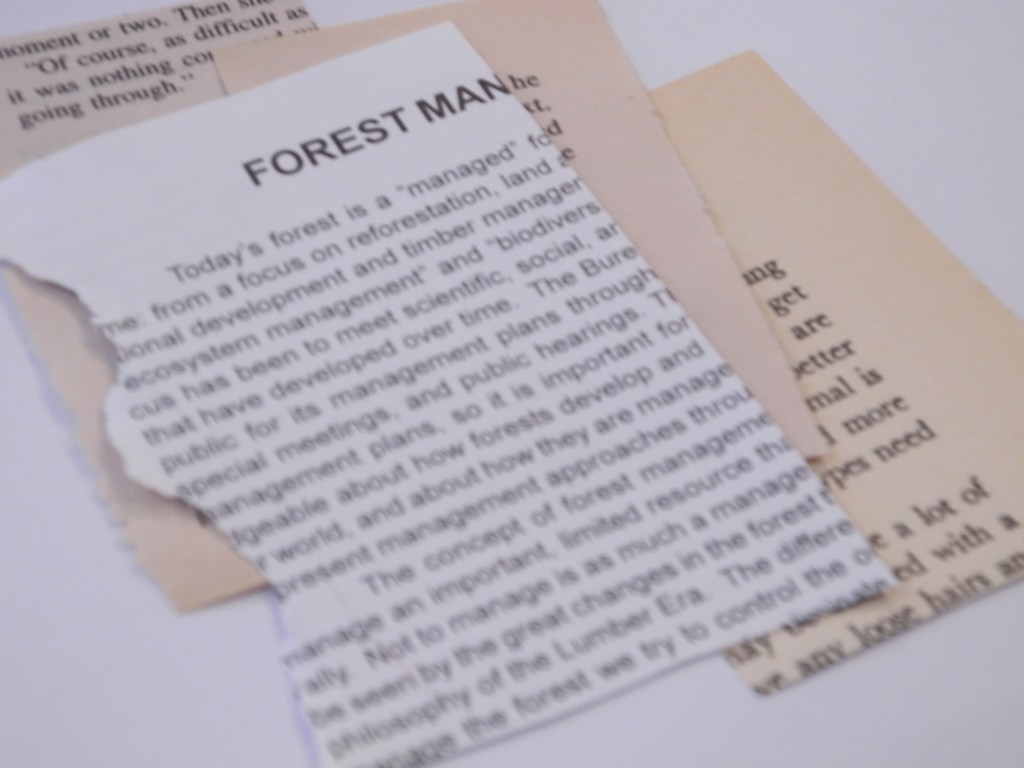 moment or two. Then she
"Of course, as difficult as
it was nothing
going through."
he
xt.
d
e
FOREST MAN
Today's forest is a "managed" fo
me: from a focus on reforestation, land a
ional development and timber manager
ecosystem management" and "biodivers
cus has been to meet scientific, social, an
that have developed over time. The Bure
public for its management plans through
special meetings, and public hearings. Th
anagement plans, so it is important for
dgeable about how forests develop and
world, and about how they are manage
present management approaches throu
The concept of forest manageme
anage an important, limited resource tha
ally. Not to manage is as much a manage
be seen by the great changes in the forest
philosophy of the Lumber Era. The differe
anage the forest we try to control the o
ing
get
are
better
mal is
d more
ypes need
e a lot of
ed with a
may
ve any loose hairs an